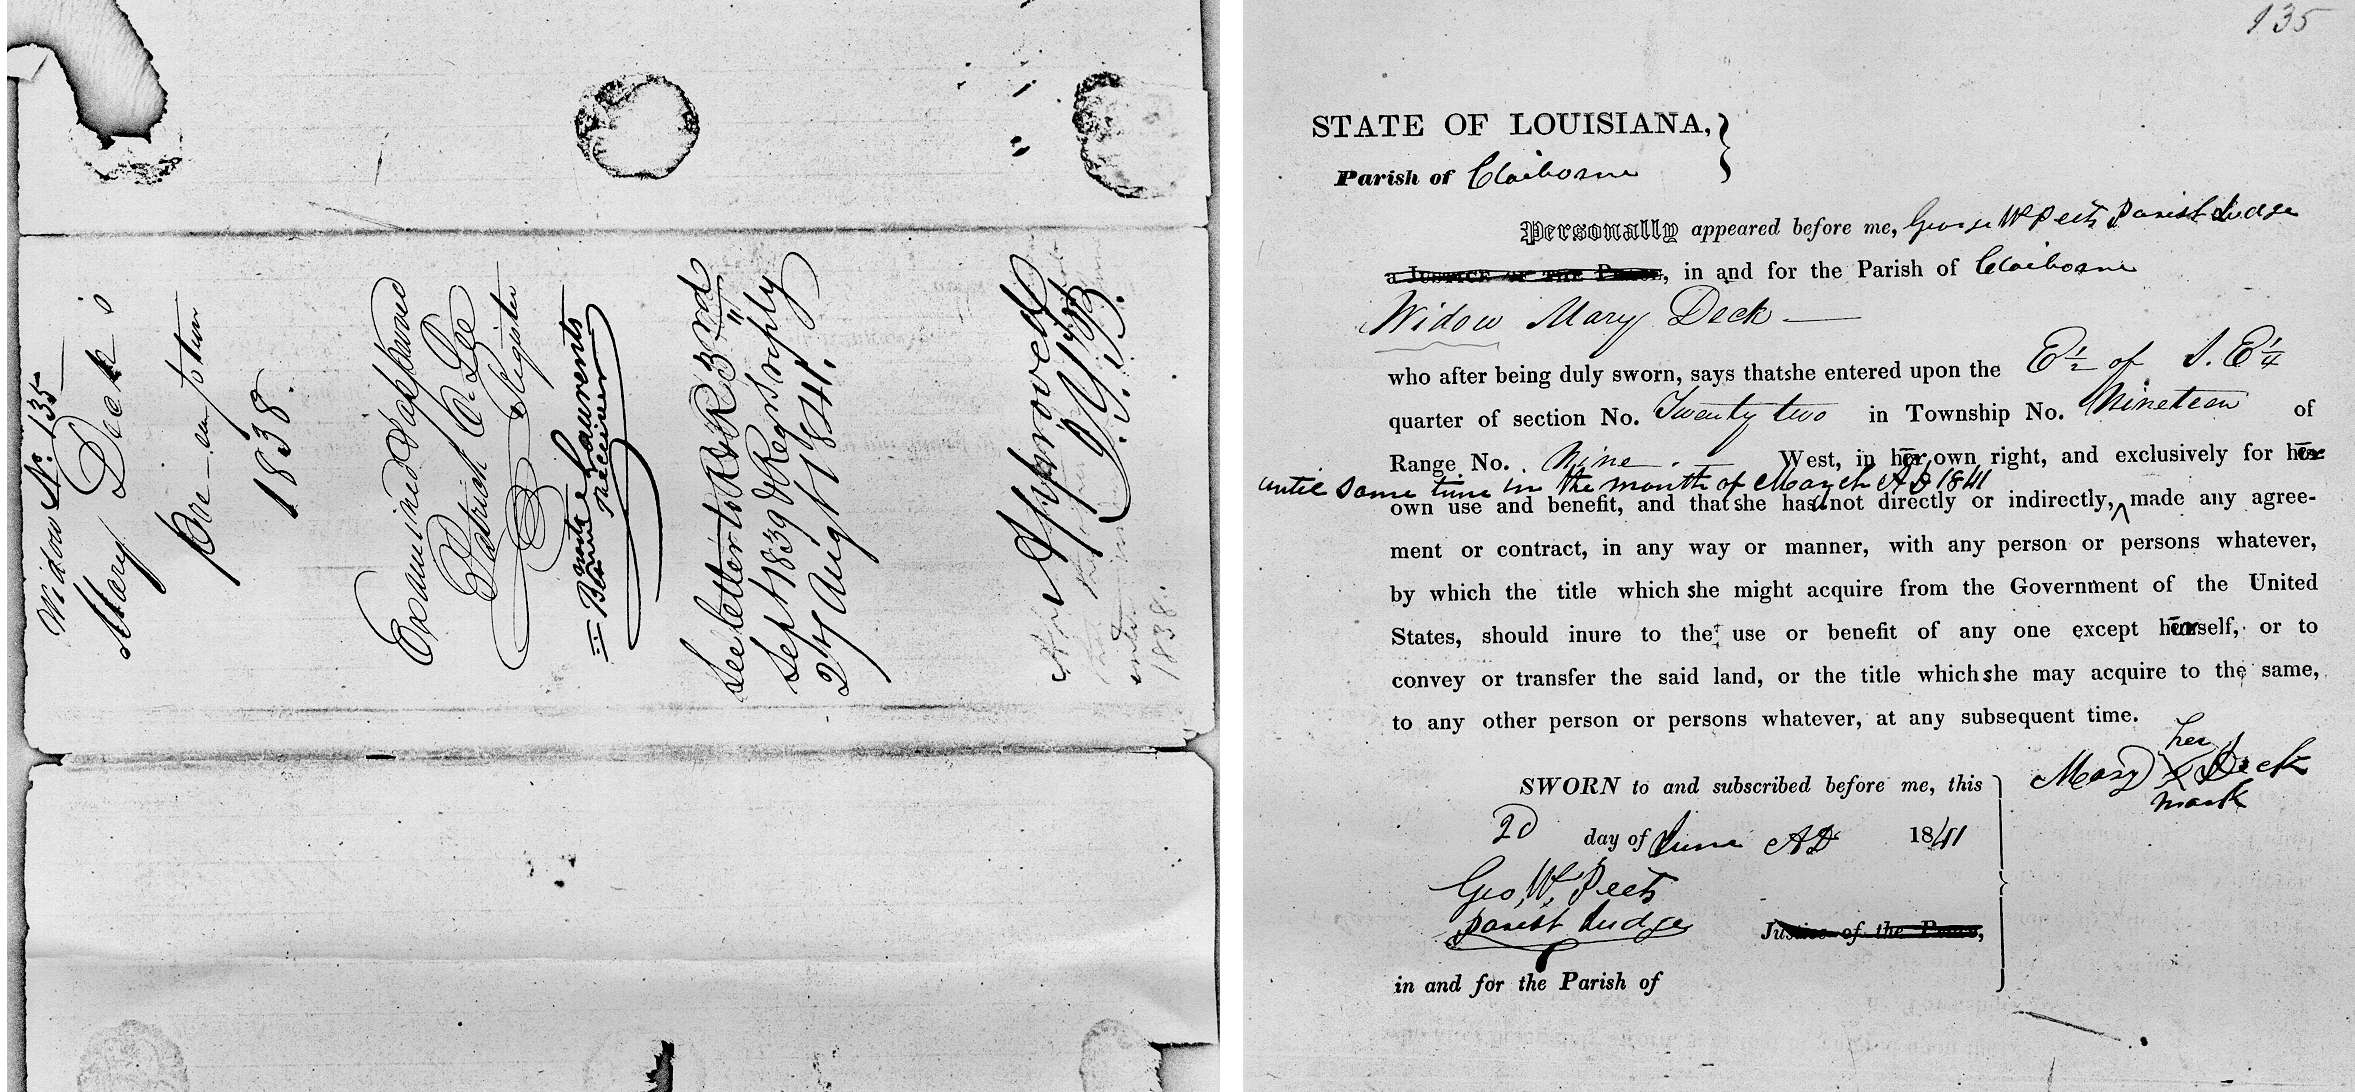 Widow No. 135
Mary Deck's
Pre-emption
1838.
Examined & approved
Patrick C. Lee
Register
Bonnte Laurents
Receiver
See letter to R & R 3rd
Sept 1839 & Regs reply
24 Augt 1841.
Approved
J. Y. B.
1838.
135
STATE OF LOUISIANA,
Parish of Claiborne
Personally appeared before me, George W Peets Parish Judge
a Justice of the Peace, in and for the Parish of Claiborne
Widow Mary Deck
who after being duly sworn, says that she entered upon the E ½ of S. E ¼
quarter of section No. Twenty two in Township No. Nineteen of
Range No. Nine West, in her own right, and exclusively for her
until some time in the month of March AD 1841
own use and benefit, and that she has not directly or indirectly, ^ made any agree-
ment or contract, in any way or manner, with any person or persons whatever,
by which the title which she might acquire from the Government of the United
States, should inure to the use or benefit of any one except herself, or to
convey or transfer the said land, or the title which she may acquire to the same,
to any other person or persons whatever, at any subsequent time.
her
Mary X Deck
mark
SWORN to and subscribed before me, this
2d day of June AD 1841
Geo, W, Peets
Parish Judge
Justice of the Peace,
in and for the Parish of